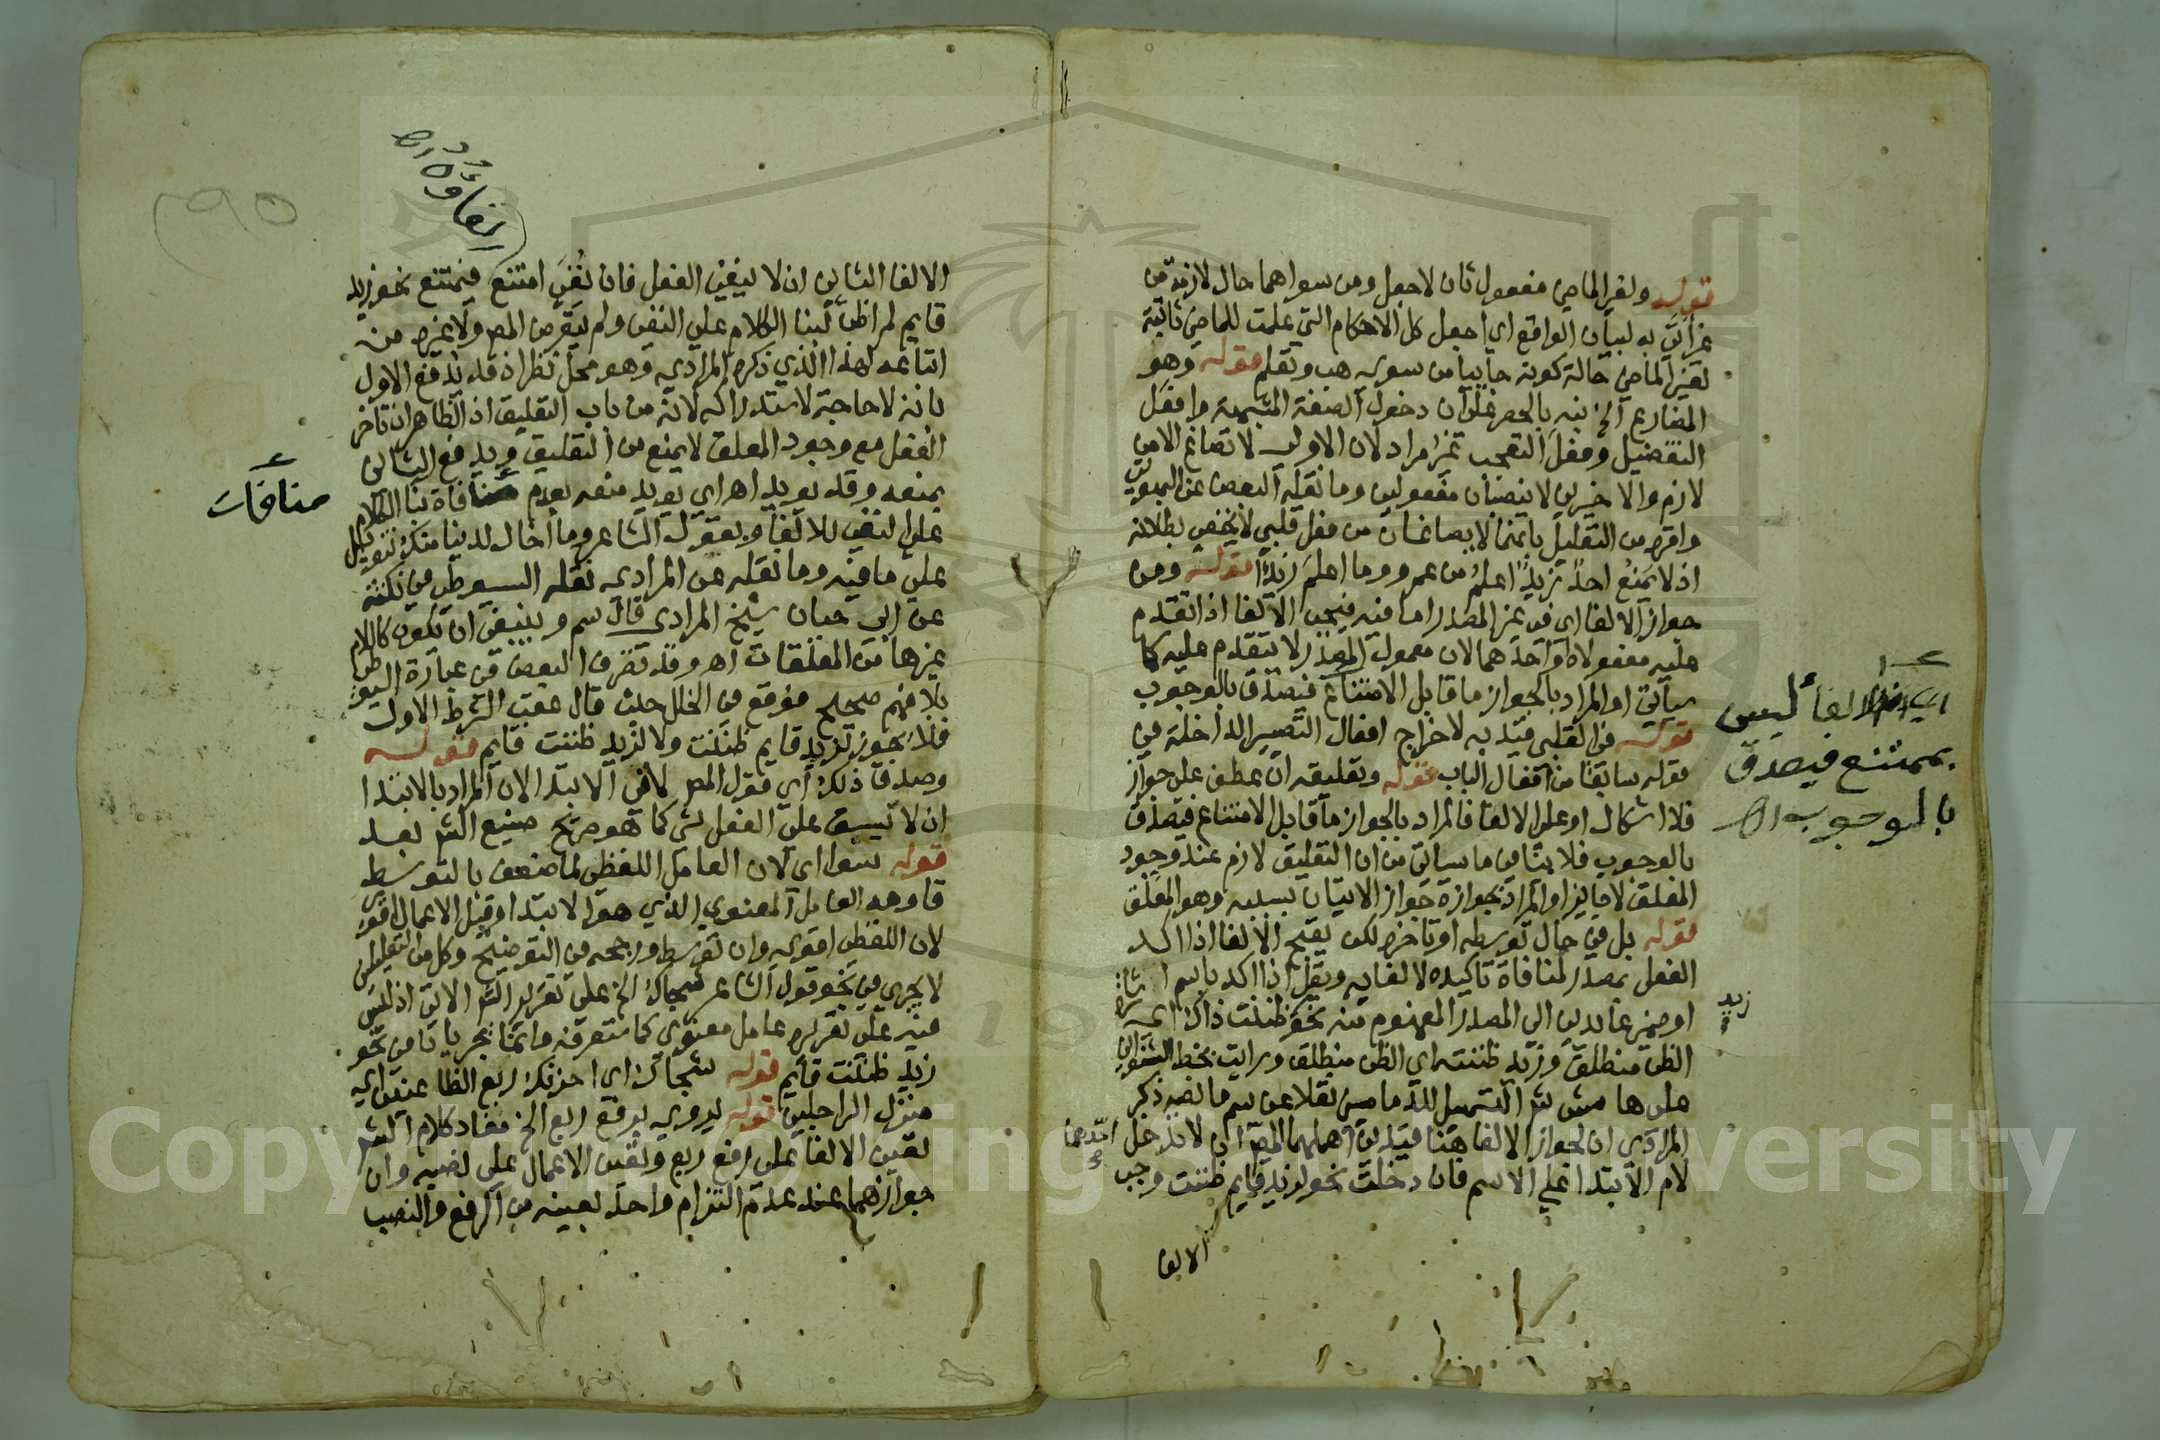 قوله ولغير الماضي مفعول ثان لاجعل ومن سواهما حال لازمة من
غير أتى به لبيان الواقع اي اجعل كل الاحكام التي علمت للماضي ثابتة
لغير الماضي حالة كونه جائيا من سوى هب وتعلم قوله وهو
المضارع الخ نبه بالحصر على ان دخول الصفة المشبهة وافعل
التفضيل وفعل التعجب غير مراد لان الاولى لا تصاغ الا من
لازم والاخيرين لا ينصبان مفعولين وما نقله البعض عن البهوتي
واقره من التعليل بانهما لا يصاغان من فعل قلبي لا يخفى بطلانه
اذ لا يمنع احد زيد اعلم من عمرو وما اعلم زيدا قوله ومن
جواز الالغا اي في غير المصدر اما فيه فيجب الالغا اذا تقدم
عليه مفعولاه او احدهما لان معمول المصدر لا يتقدم عليه كما
سيأتي او المراد بالجواز ما قابل الامتناع فيصدق بالوجوب
قوله في القلبي قيد به لاخراج افعال التصيير الداخلة في
قوله سابقا من افعال الباب قوله وتعليقه ان عطف على جواز
فلا اشكال او على الالغا فالمراد بالجواز ما قابل الامتناع فيصدق
بالوجوب فلا ينافي ما سيأتي من ان التعليق لازم عند وجود
المعلق لا جايز او المراد بجوازه جواز الاتيان بسببه وهو المعلق
قوله بل في حال توسطه او تاخره لكن يقبح الالغا اذا اكد
الفعل بمصدر لمنافاة تاكيده لالغايه ويقل اذا اكد باسم اشارة
او ضمير عايدين الى المصدر المفهوم منه نحو زيد ظننت ذاك اي
الظن منطلق وزيد ظننته اي الظن منطلق ورايت بخط الشنواني
على هامش شر التسهيل للدماميني نقلا عن سم ما نصه ذكر
المرادي ان لجواز الالغا هنا قيدين اهملهما المص احدهما ان لا تدخل
لام الابتدا على الاسم فان دخلت نحو لزيد قايم ظننت وجب
الالغا
اي الالغا ليس
بممتنع فيصدق
بالوجوب اه
زيد
احدهما
الالغا الثاني ان لا ينفى الفعل فان نفي امتنع فيمتنع نحو زيد
قايم لم اظن لبنا الكلام على النفي ولم يتعرض المص ولا غيره من
اتباعه لهذا الذي ذكره المرادي وهو محل نظر اذ قد يدفع الاول
بانه لا حاجة لاستدراكه لانه من باب التعليق اذ الظاهر ان تاخر
الفعل مع وجود المعلق لا يمنع من التعليق ويدفع الثاني
بمنعه وقد يويد اه اي يويد منعه بعدم منافاة بنا الكلام
على النفي للالغا وبقول الشاعر وما اخال لدينا منك تنويل
على ما فيه وما نقله عن المرادي نقله السيوطي في نكته
عن ابي حيان شيخ المرادي قال سم وينبغي ان تكون كاللام
غيرها من المعلقات اه وقد تصرف البعض في عبارة السيوطي
بلا فهم صحيح فوقع في الخلل حيث قال عقب الشرط الاول
فلا يجوز لزيد قايم ظننت ولا لزيد ظننت قايم قوله
وصدق ذلك اي قول المص لا في الابتدا لان المراد بالابتدا
ان لا يسبق على الفعل شي كما هو صريح صنيع الشر بعد
قوله سوا اي لان العامل اللفظي لما ضعف بالتوسط
قاومه العامل المعنوي الذي هو الابتدا وقيل الاعمال اقوى
لان اللفظي اقوى وان توسط ورجحه في التوضيح وكل من التعليلين
لا يجري في نحو قول الشاعر شجاك الخ على تقرير الشر الاتي اذ ليس
فيه على تقريره عامل معنوي كما ستعرفه وانما يجريان في نحو
زيد ظننت قايم قوله شجاك اي احزنك ربع الظاعنين اي
منزل الراحلين قوله يروى برفع ربع الخ مفاد كلام الشر
تعين الالغا على رفع ربع وتعين الاعمال على نصبه وان
جوازهما عند عدم التزام واحد بعينه من الرفع والنصب
منافات